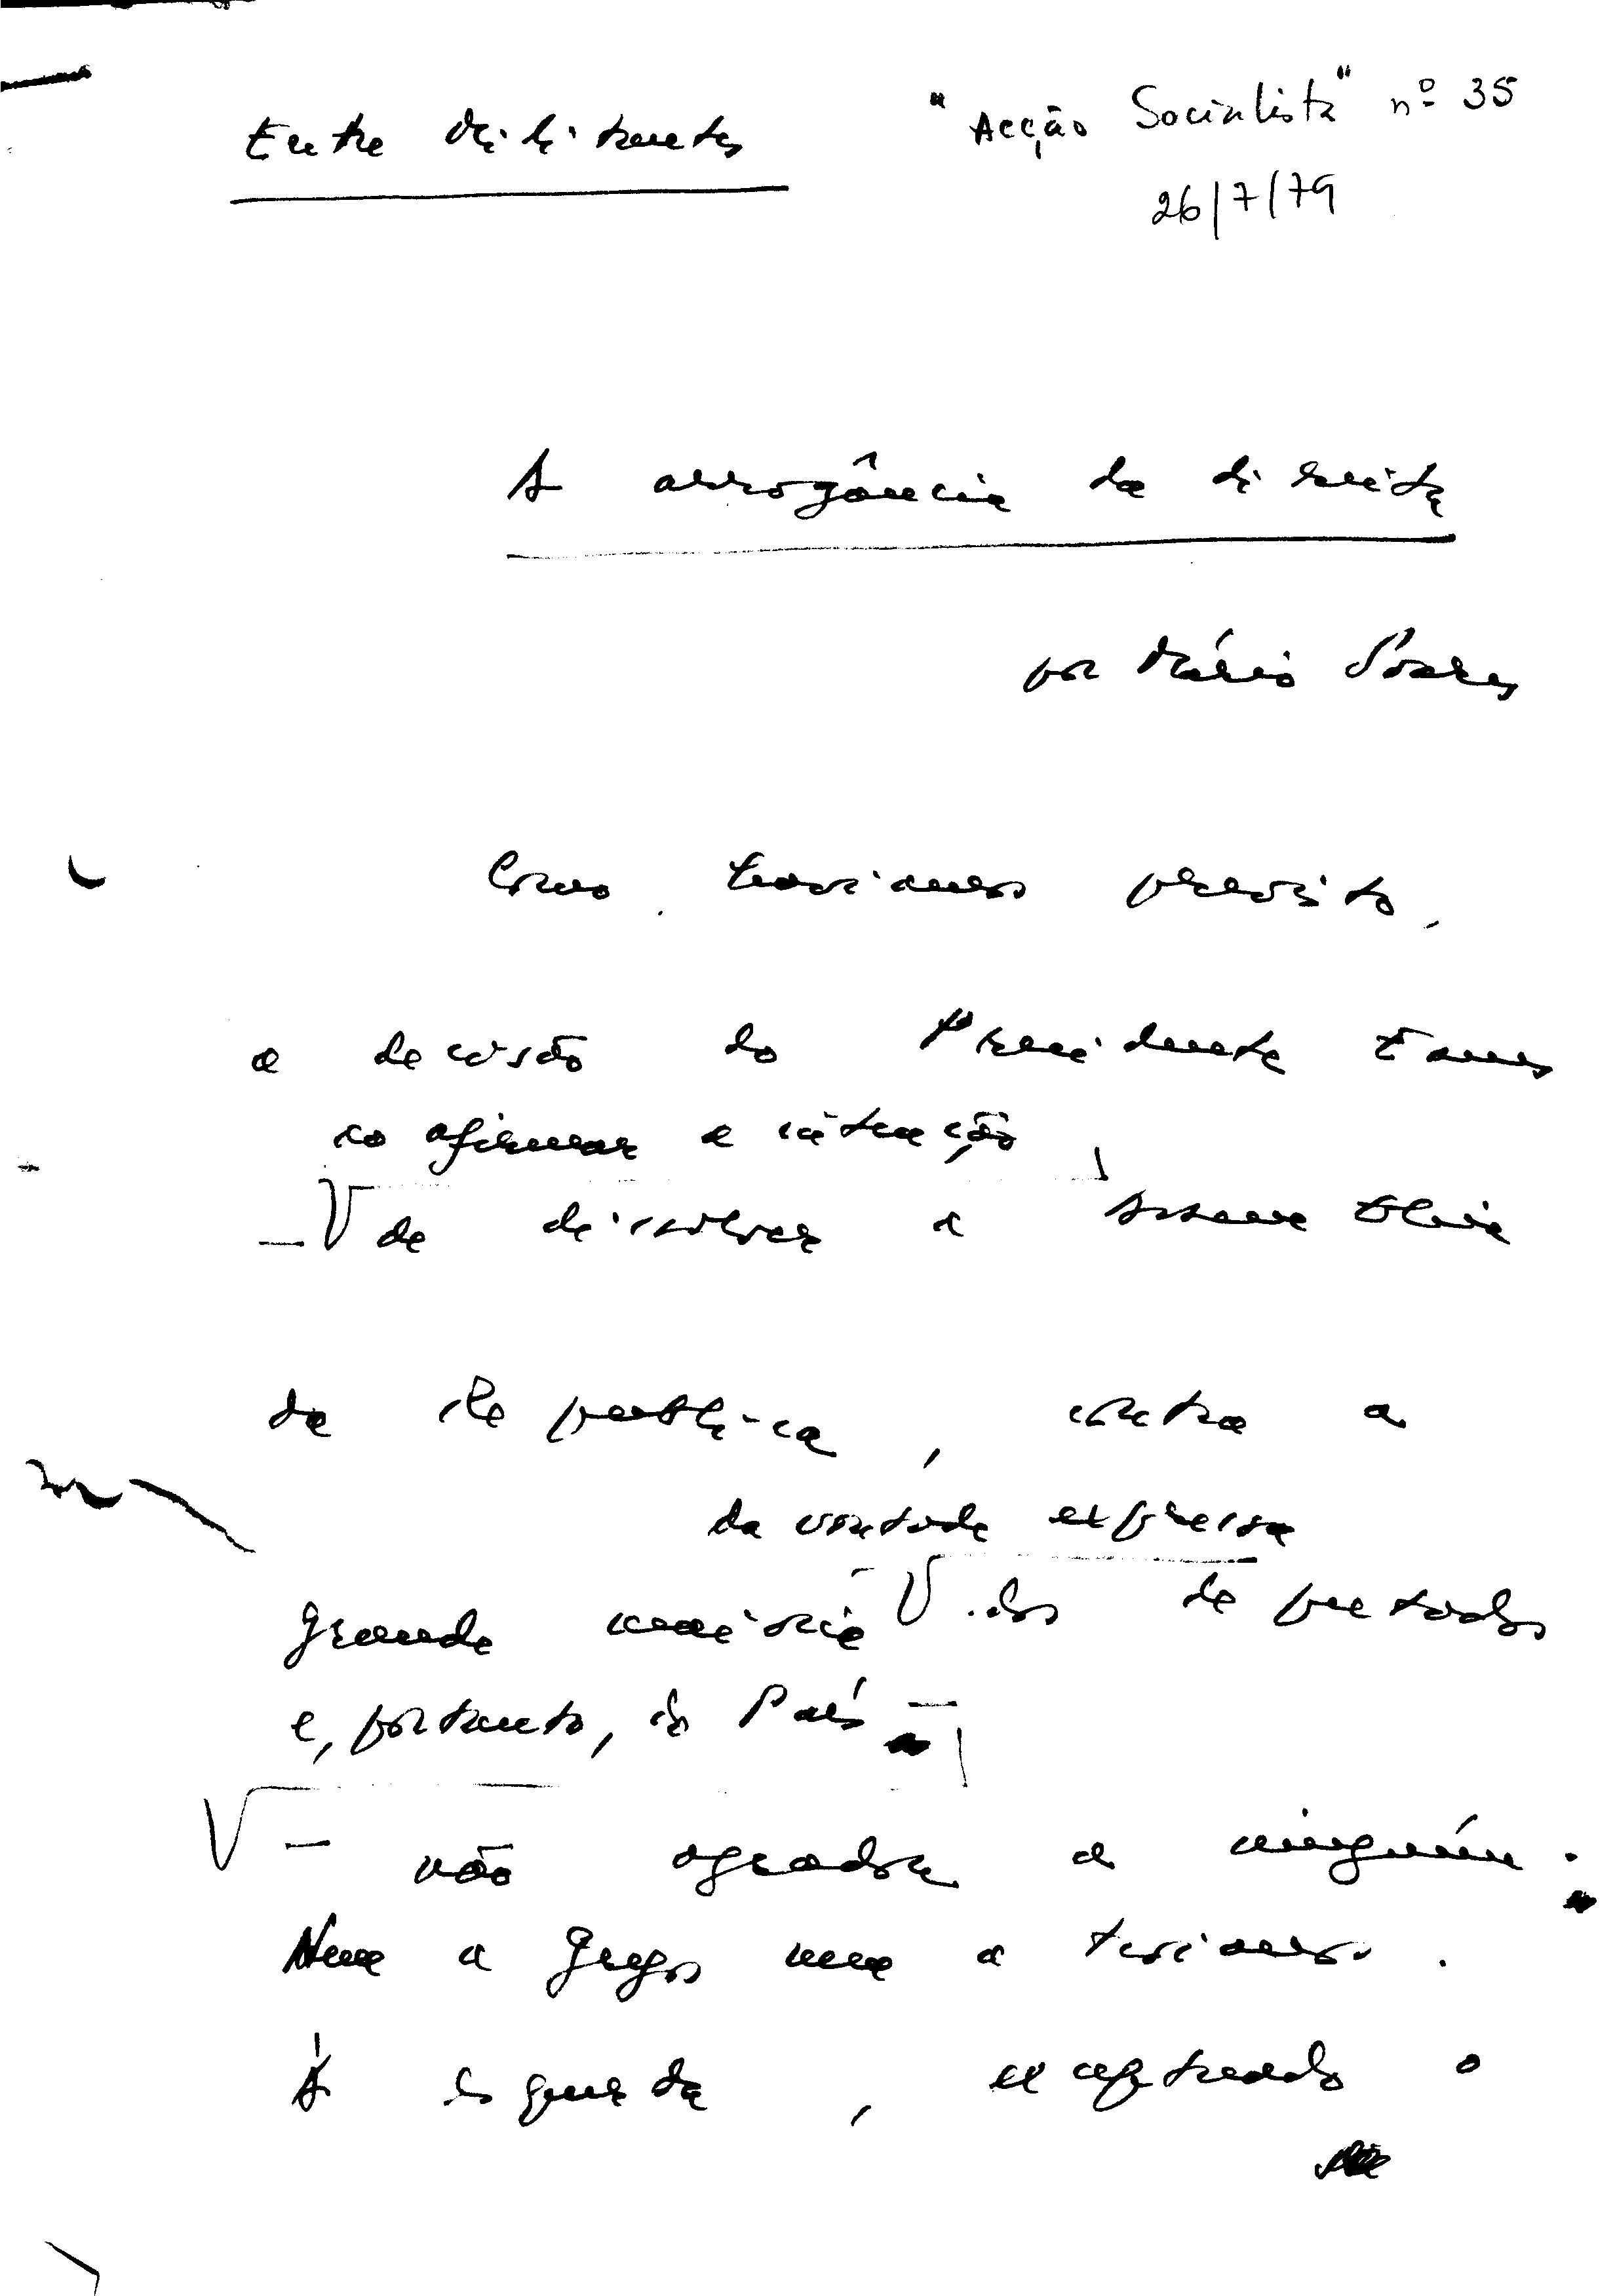 Entre Militantes
"Acção Socialista" nº 35
26/7/79
A arrogância da direita
por Mário Soares
Como havíamos previsto,
a decisão do Presidente Eanes
ao afirmar a intenção
— de dissolver a Assembleia
da República, contra a
da vontade expressa
grande maioria dos deputados
e, portanto, do País —
— não agradou a ninguém.
Nem a gregos nem a troianos.
À esquerda, exceptuando o